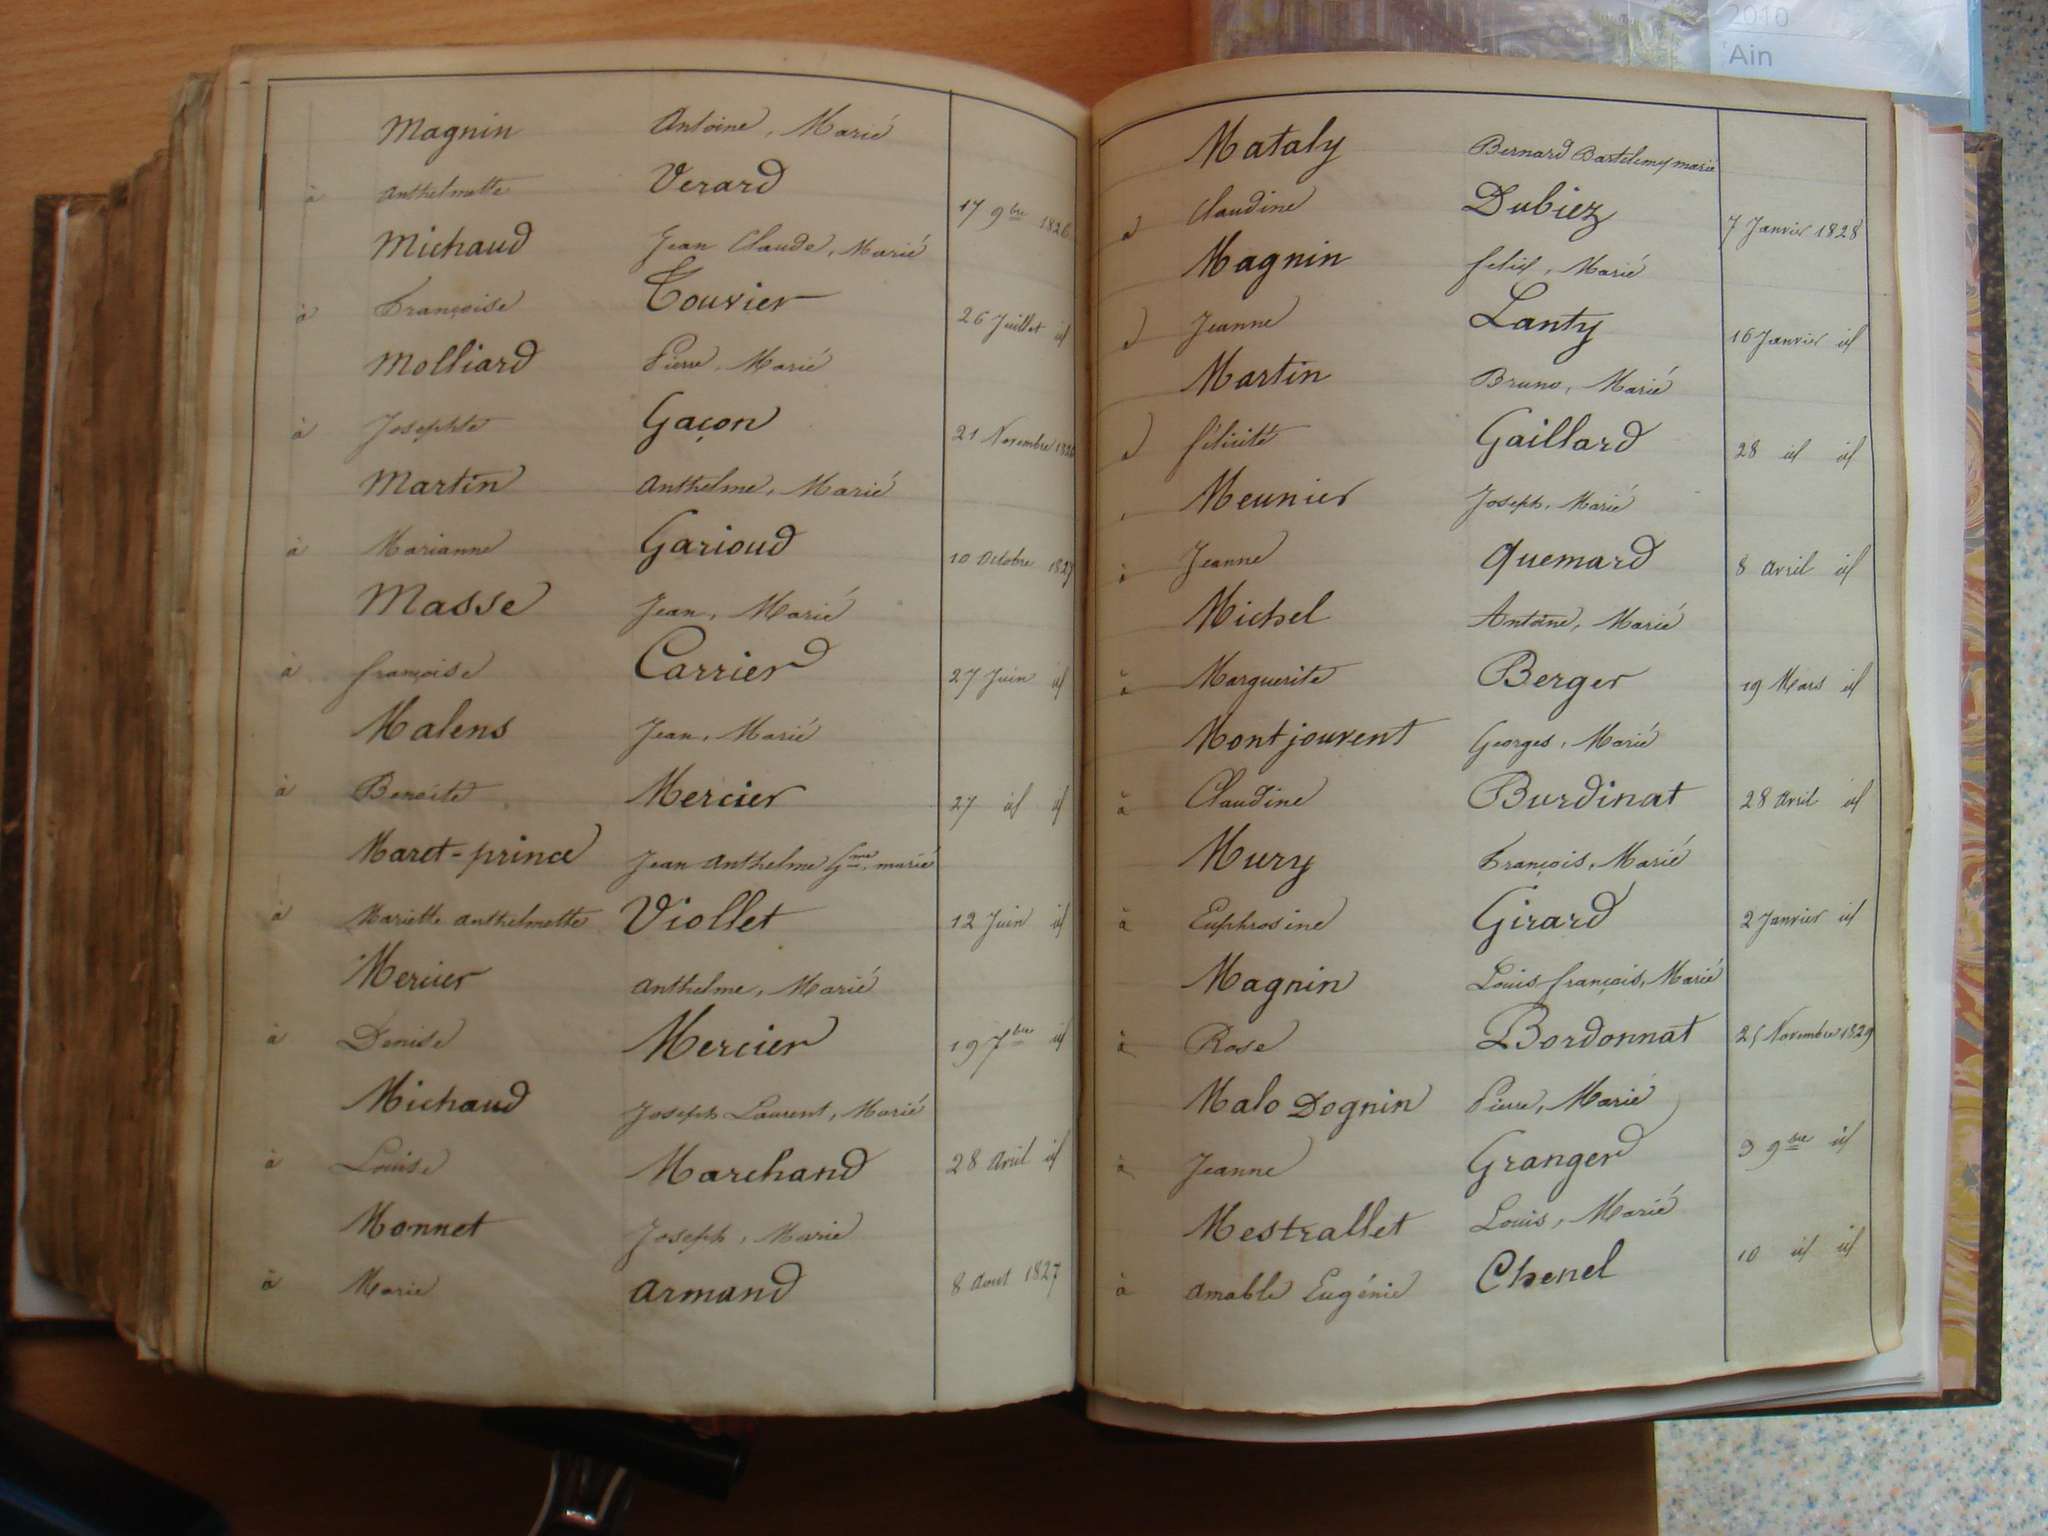 2010
Ain
Magnin Antoine, Marié
à Anthelmette Verard 17 9bre 1826
Michaud Jean Claude, Marié
à Françoise Touvier 26 Juillet id
Molliard Pierre, Marié
à Josephte Gaçon 21 Novembre 1826
Martin Anthelme, Marié
à Marianne Garioud 10 Octobre 1827
Masse Jean, Marié
à françoise Carrier 27 Juin id
Malens Jean, Marié
à Benoite Mercier 27 id id
Maret-prince Jean Anthelme Gme, marié
à Mariette anthelmette Viollet 12 Juin id
Mercier Anthelme, Marié
à Denise Mercier 19 7bre id
Michaud Joseph Laurent, Marié
à Louise Marchand 28 Avril id
Monnet Joseph, Marié
à Marie Armand 8 Aout 1827
Mataly Bernard Bartelemy marié
à Claudine Dubiez 7 Janvier 1828
Magnin felix, Marié
à Jeanne Lanty 16 Janvier id
Martin Bruno, Marié
à félicité Gaillard 28 id id
Meunier Joseph, Marié
à Jeanne Quemard 8 Avril id
Michel Antoine, Marié
à Marguerite Berger 19 Mars id
Montjouvent Georges, Marié
à Claudine Burdinat 28 Avril id
Mury François, Marié
à Euphrosine Girard 2 Janvier id
Magnin Louis françois, Marié
à Rose Bordonnat 25 Novembre 1829
Malo Dognin Pierre, Marié
à Jeanne Granger 9bre id
Mestrallet Louis, Marié
à Amable Eugénie Chenel 10 id id